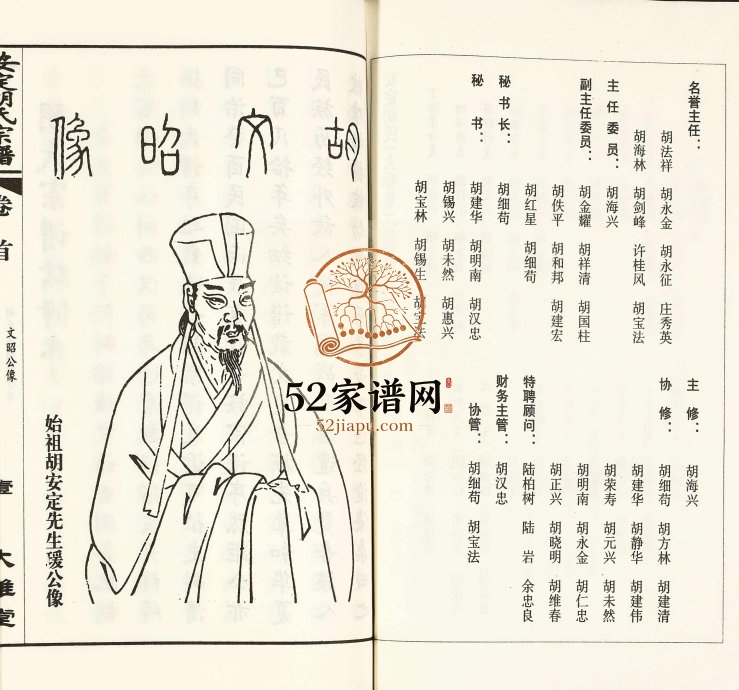 名誉主任：
胡法祥 胡永金 胡永征 庄秀英
胡海林 胡剑峰 许桂风 胡宝法
主任委员：
胡海兴
副主任委员：
胡金耀 胡祥清 胡国柱
胡佚平 胡和邦 胡建宏
胡红星 胡细苟
秘书长：
胡细苟
秘书：
胡建华 胡明南 胡汉忠
胡锡兴 胡未然 胡惠兴
胡宝林 胡锡生 胡宝法
主修：
胡海兴
协修：
胡细苟 胡方林 胡建清
胡建华 胡静华 胡建伟
胡荣寿 胡元兴 胡未然
胡明南 胡永金 胡仁忠
胡正兴 胡晓明 胡维春
特聘顾问：
陆柏树 陆岩 余忠良
财务主管：
胡汉忠
协管：
胡细苟 胡宝法
胡文昭像
始祖胡安定先生瑗公像
安定胡氏宗谱
卷首
文昭公像
壹
大雅堂
52家谱网
52jiapu.com